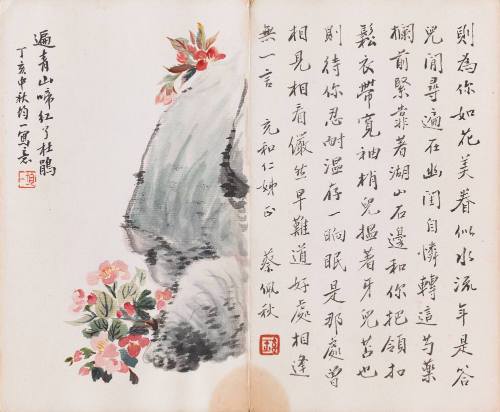 則為你如花美眷似水流年是答
兒閒尋遍在幽閨自憐轉這芍藥
欄前緊靠著湖山石邊和你把領扣
鬆衣帶寬袖梢兒搵著牙兒苫也
則待你忍耐溫存一晌眠是那處曾
相見相看儼然早難道好處相逢
無一言 元和仁姊正
蔡佩秋
遍青山啼紅了杜鵑
丁亥中秋均一寫意